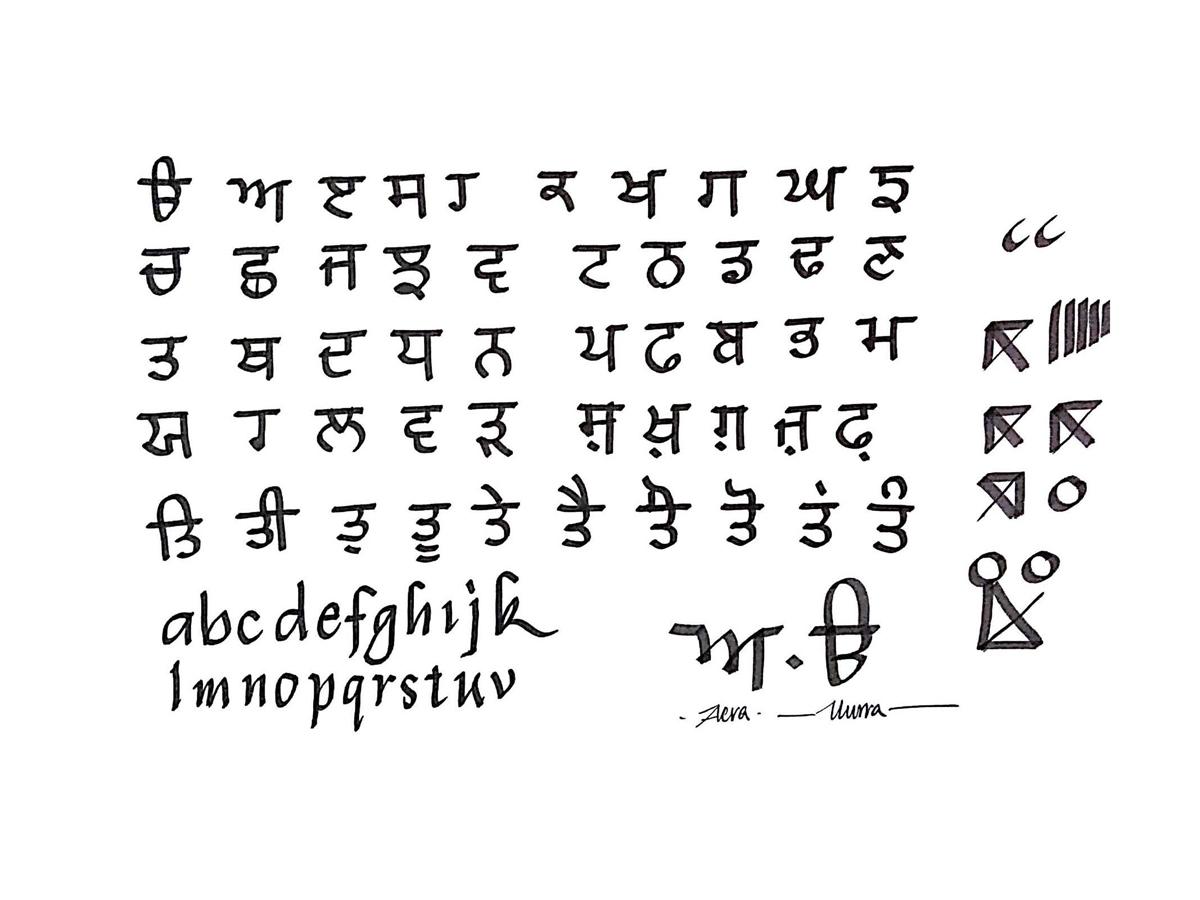 ੳ ਅ ੲ ਸ ਹ ਕ ਖ ਗ ਘ ਙ
ਚ ਛ ਜ ਝ ਵ ਟ ਠ ਡ ਢ ਣ
ਤ ਥ ਦ ਧ ਨ ਪ ਫ ਬ ਭ ਮ
ਯ ਰ ਲ ਵ ੜ ਸ਼ ਖ਼ ਗ਼ ਜ਼ ਫ਼
ਤਿ ਤੀ ਤੁ ਤੂ ਤੇ ਤੈ ਤੋ ਤੌ ਤਂ ਤੰ
abcdefghijk
lmnopqrstuv
ਅ · ੳ